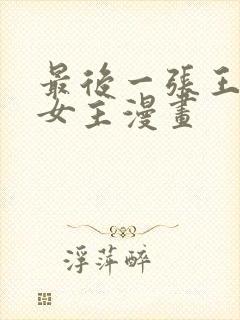 最後一張王
女主漫畫
浮萍醉